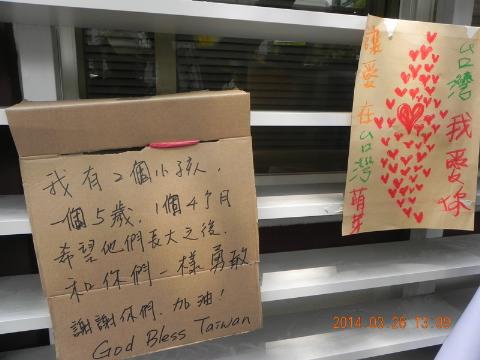 我有2個小孩,
一個5歲,1個4个月
希望他們長大之後,
和你們一樣勇敢
謝謝你們,加油!
God Bless Taiwan
台灣我愛你
讓愛在台灣萌芽
2014.03.26 13:09